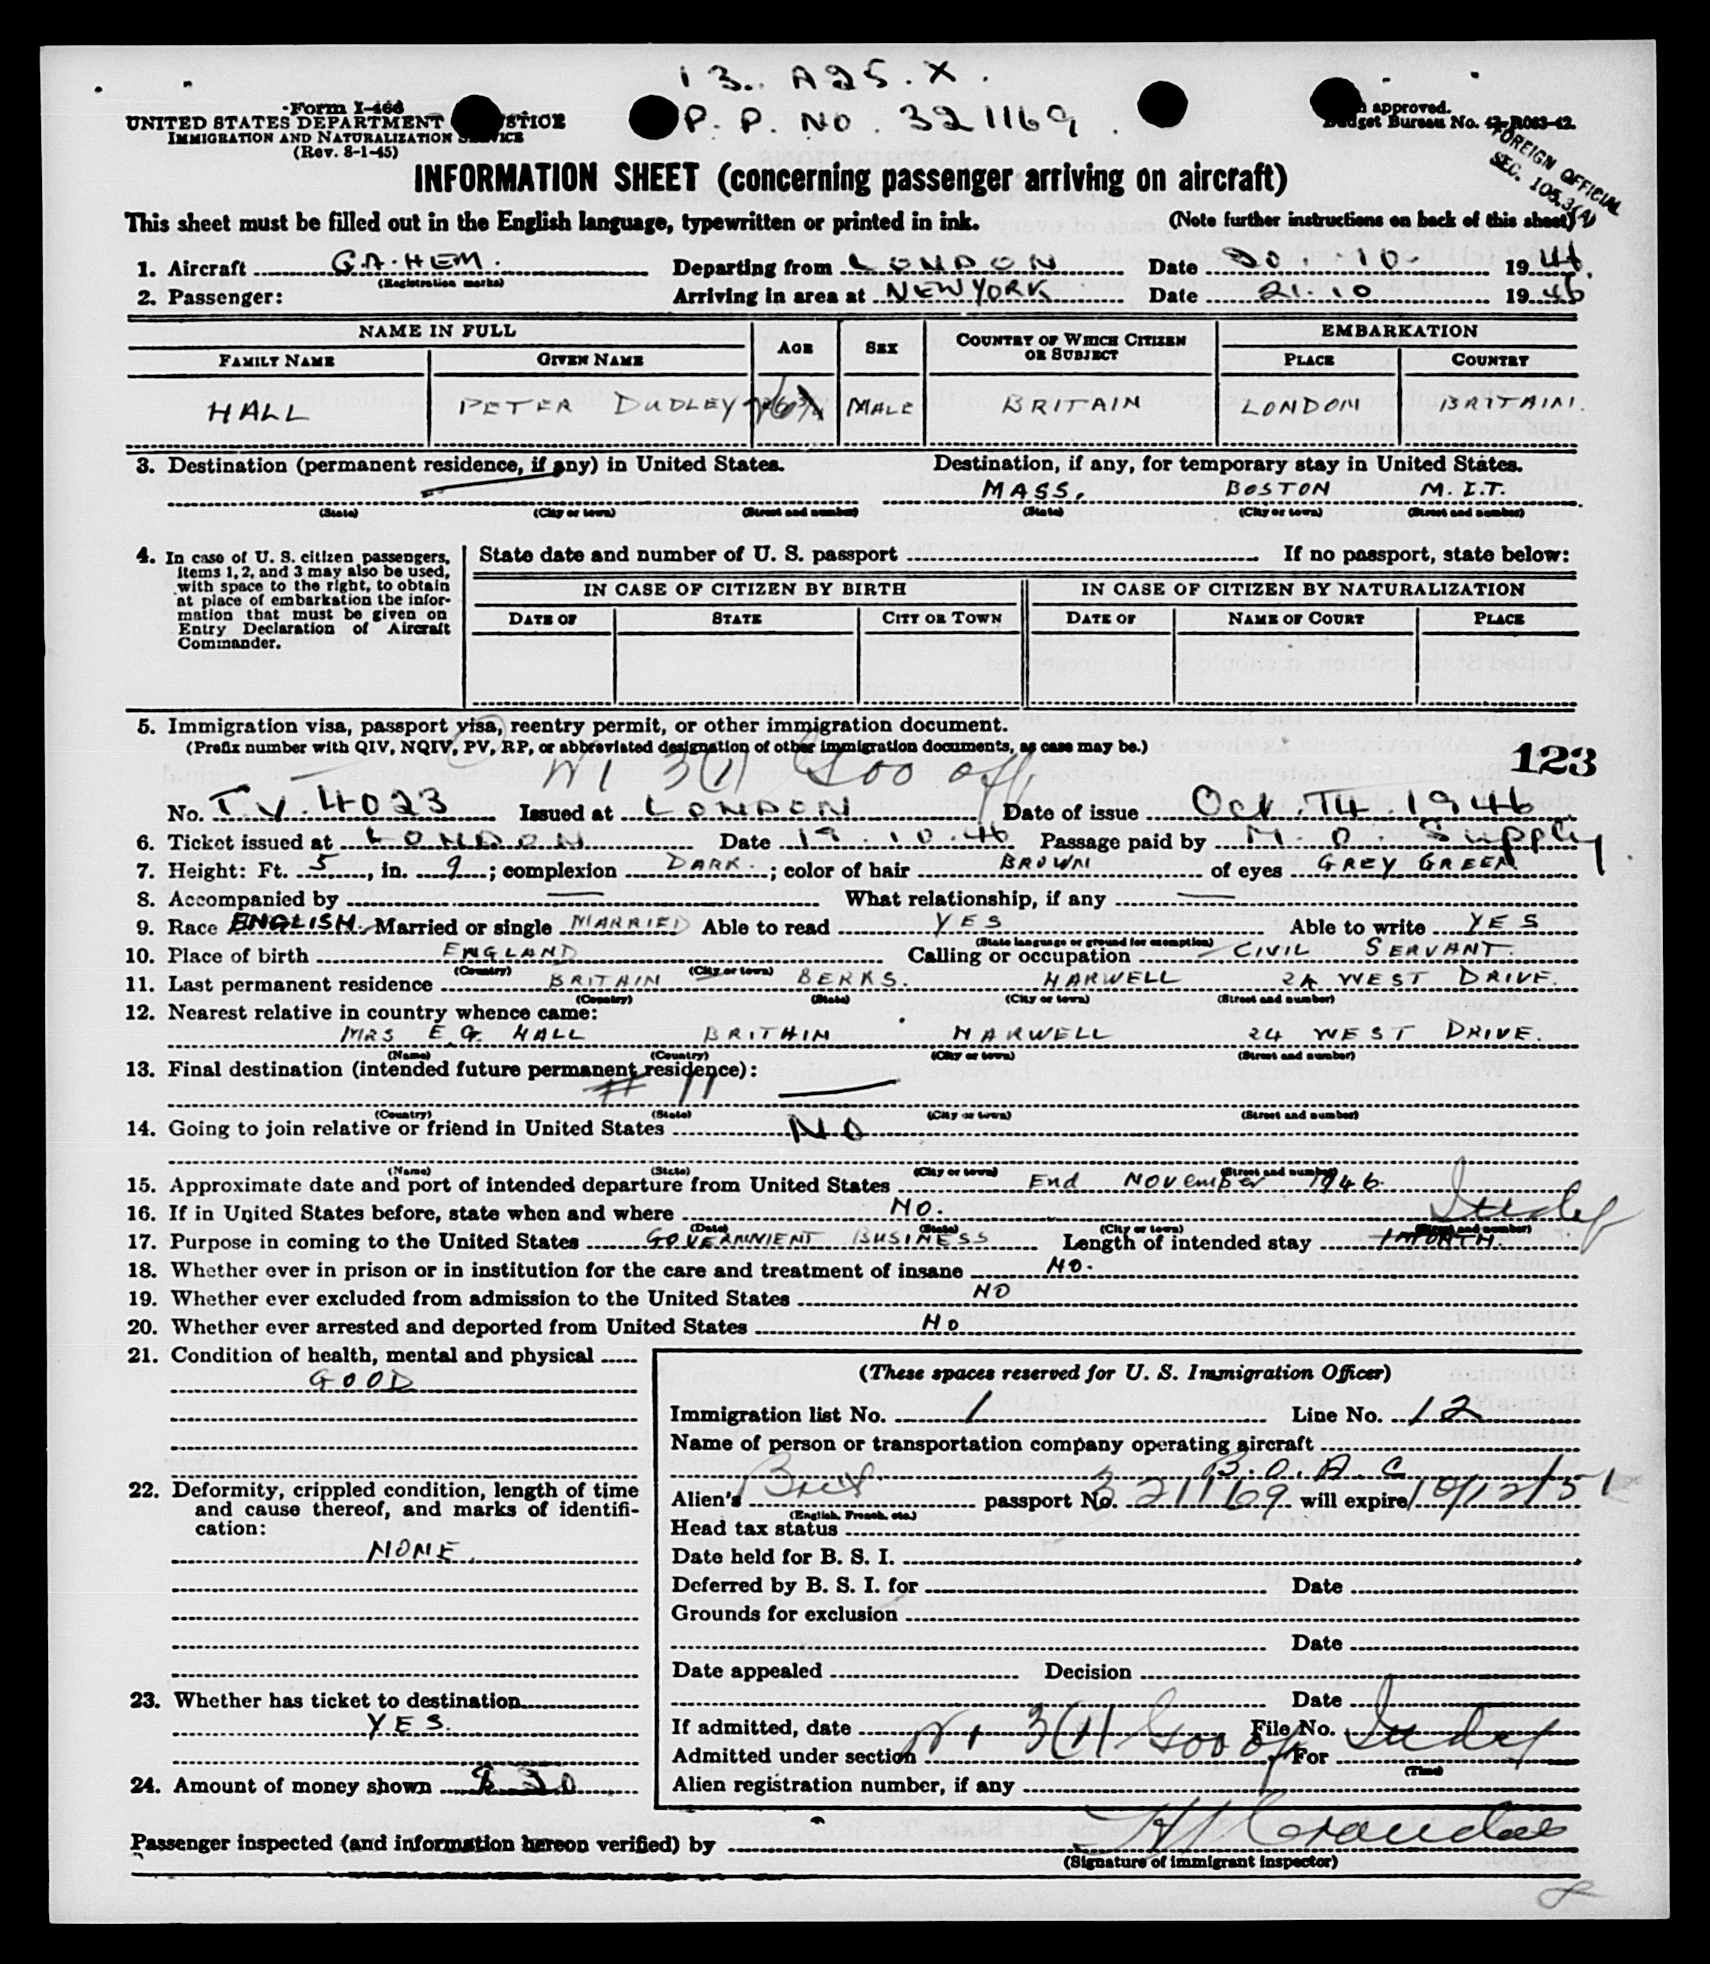 13. A25. X.
P. P. No. 321169.
Form I-466
UNITED STATES DEPARTMENT STICE
IMMIGRATION AND NATURALIZATION SERVICE
(Rev. 8-1-45)
approved.
Budget Bureau No. 43-R083-42.
FOREIGN OFFICIAL
SEC. 105.3(A)
INFORMATION SHEET (concerning passenger arriving on aircraft)
This sheet must be filled out in the English language, typewritten or printed in ink. (Note further instructions on back of this sheet)
1. Aircraft G.A.HEM. Departing from LONDON Date 20.10. 1946.
(Registration marks)
2. Passenger: Arriving in area at NEW YORK Date 21.10 1946
NAME IN FULL AGE SEX COUNTRY OF WHICH CITIZEN OR SUBJECT EMBARKATION
FAMILY NAME GIVEN NAME PLACE COUNTRY
HALL PETER DUDLEY MALE BRITAIN LONDON BRITAIN.
3. Destination (permanent residence, if any) in United States. Destination, if any, for temporary stay in United States.
MASS. BOSTON M.I.T.
(State) (City or town) (Street and number) (State) (City or town) (Street and number)
4. In case of U. S. citizen passengers, items 1, 2, and 3 may also be used, with space to the right, to obtain at place of embarkation the information that must be given on Entry Declaration of Aircraft Commander.
State date and number of U. S. passport If no passport, state below:
IN CASE OF CITIZEN BY BIRTH IN CASE OF CITIZEN BY NATURALIZATION
DATE OF STATE CITY OR TOWN DATE OF NAME OF COURT PLACE
5. Immigration visa, passport visa, reentry permit, or other immigration document.
(Prefix number with QIV, NQIV, PV, RP, or abbreviated designation of other immigration documents, as case may be.)
123
3(1) Gov off
No. T.V. 4023 Issued at LONDON Date of issue Oct. 14. 1946
6. Ticket issued at LONDON Date 19.10.46 Passage paid by M. O. Supply
7. Height: Ft. 5, in. 9; complexion DARK.; color of hair BROWN of eyes GREY GREEN
8. Accompanied by — What relationship, if any —
9. Race ENGLISH. Married or single MARRIED Able to read YES Able to write YES
(State language or ground for exemption)
10. Place of birth ENGLAND Calling or occupation CIVIL SERVANT.
(Country) (City or town)
11. Last permanent residence BRITAIN BERKS. HARWELL 24 WEST DRIVE.
(Country) (State) (City or town) (Street and number)
12. Nearest relative in country whence came:
MRS E.G. HALL BRITAIN HARWELL 24 WEST DRIVE.
(Name) (Country) (City or town) (Street and number)
13. Final destination (intended future permanent residence):
# 11 —
(Country) (State) (City or town) (Street and number)
14. Going to join relative or friend in United States NO
(Name) (State) (City or town) (Street and number)
15. Approximate date and port of intended departure from United States End November 1946.
16. If in United States before, state when and where NO.
(Date) (State) (City or town) (Street and number)
17. Purpose in coming to the United States GOVERNMENT BUSINESS Length of intended stay 1 MONTH.
18. Whether ever in prison or in institution for the care and treatment of insane NO.
19. Whether ever excluded from admission to the United States NO
20. Whether ever arrested and deported from United States NO
21. Condition of health, mental and physical
GOOD
22. Deformity, crippled condition, length of time and cause thereof, and marks of identification:
NONE.
23. Whether has ticket to destination
YES.
24. Amount of money shown
(These spaces reserved for U. S. Immigration Officer)
Immigration list No. 1 Line No. 12
Name of person or transportation company operating aircraft
B.O.A.C
Alien's Brit passport No. 321169 will expire 10/12/51
(English, French, etc.)
Head tax status
Date held for B. S. I.
Deferred by B. S. I. for Date
Grounds for exclusion
Date
Date appealed Decision
Date
If admitted, date File No.
Admitted under section 3(1) Gov off For
(Time)
Alien registration number, if any
Passenger inspected (and information hereon verified) by
(Signature of immigrant inspector)